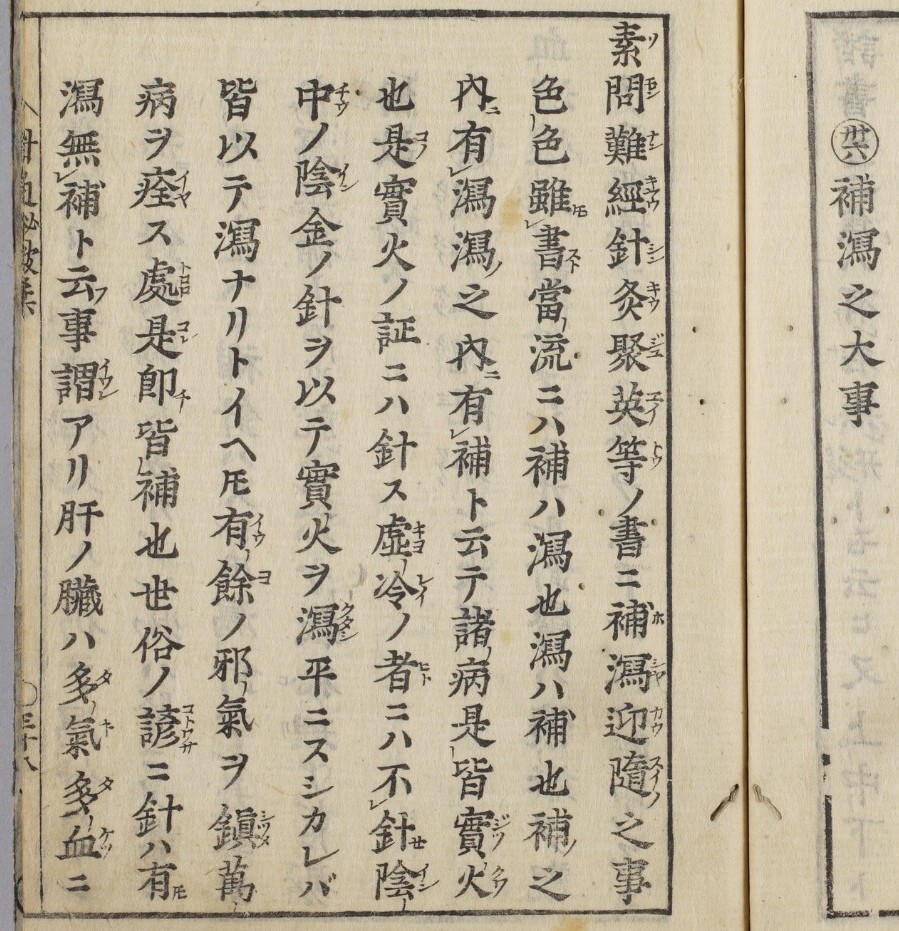 ㊱補瀉之大事
素問難經針灸聚英等ノ書ニ補瀉迎隨之事
色色雖書當流ニハ補ハ瀉也瀉ハ補也補之
内有瀉瀉之内有補ト云テ諸病是皆實火
也是實火ノ証ニハ針ス虛冷ノ者ニハ不針陰
中ノ陰金ノ針ヲ以テ實火ヲ瀉平ニスシカレバ
皆以テ瀉ナリトイヘ𪜈有餘ノ邪氣ヲ鎭萬
病ヲ痊ス處是即皆補也世俗ノ諺ニ針ハ有
瀉無補ト云事謂アリ肝ノ臟ハ多氣多血ニ